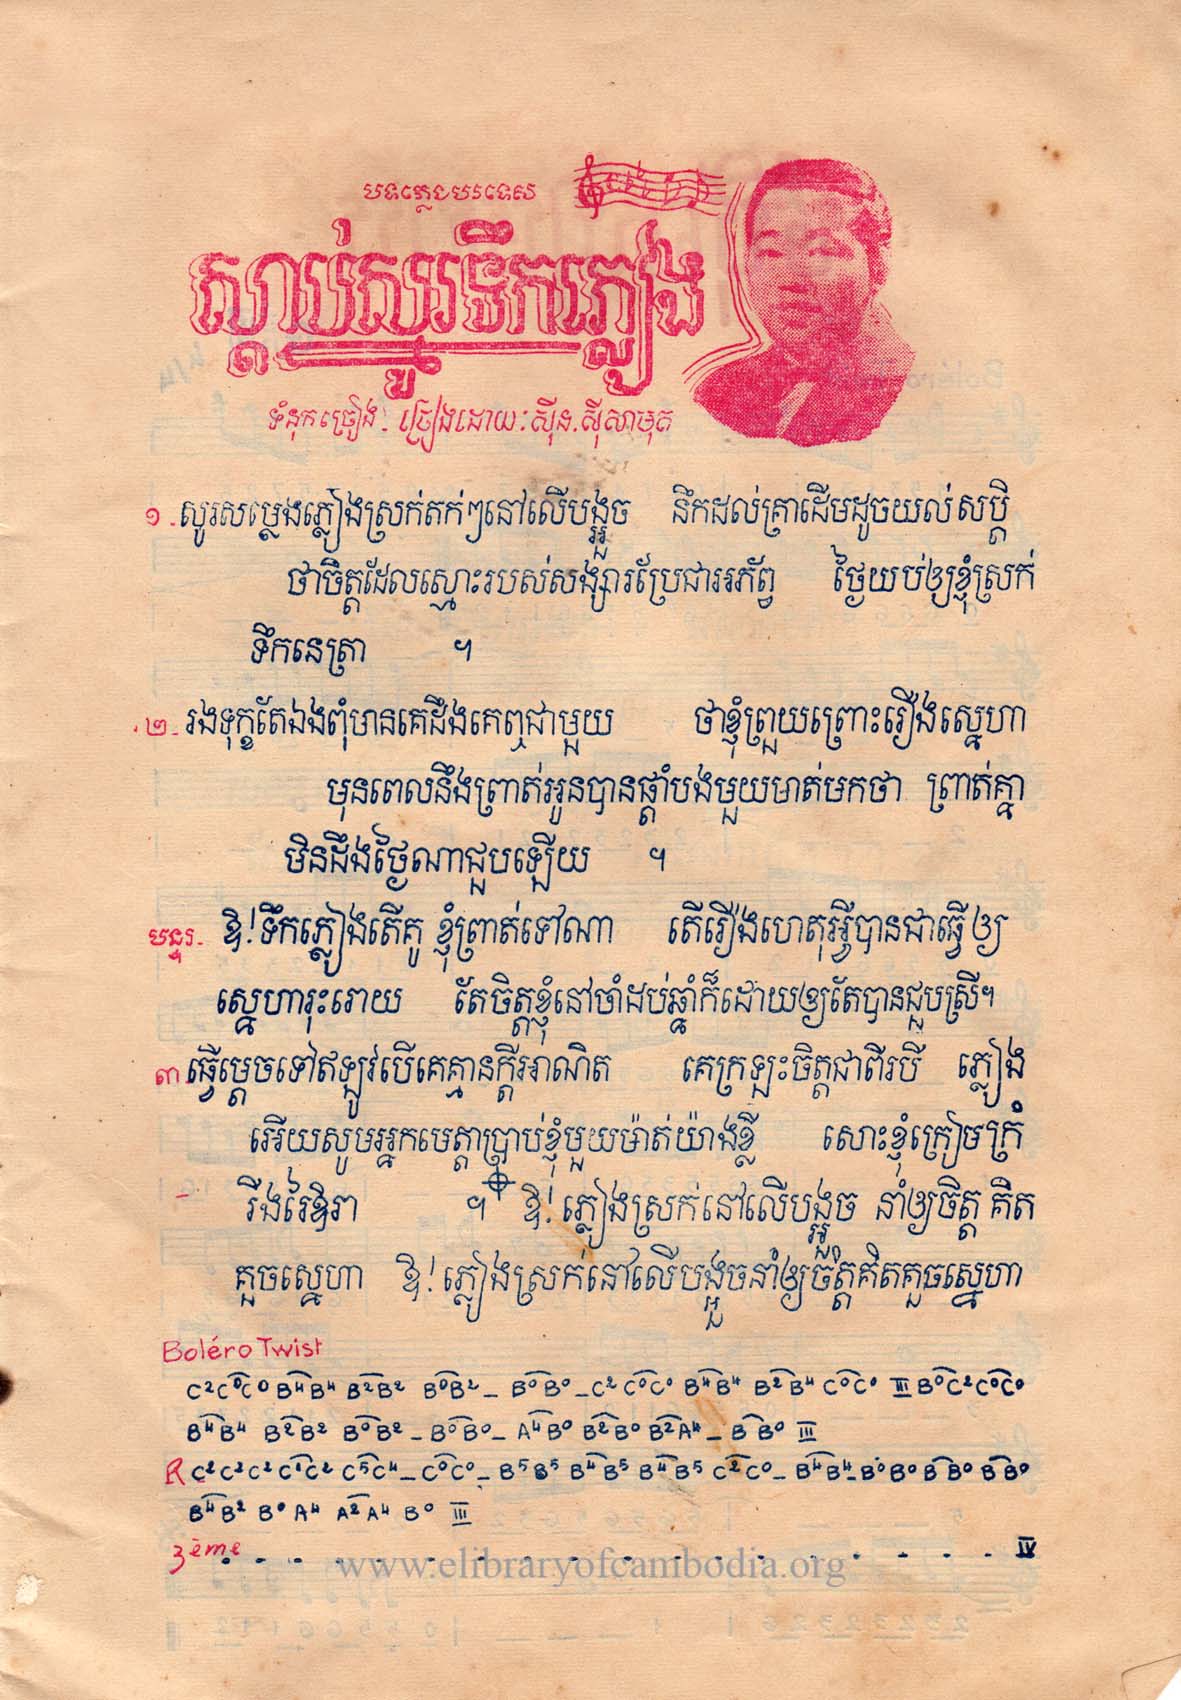 បទភ្លេងបរទេស
ស្ដាប់សូរទឹកភ្លៀង
ទំនុកច្រៀង. ច្រៀងដោយ: ស៊ីន.ស៊ីសាមុត
១. សូរសម្លេងភ្លៀងស្រក់តក់ៗនៅលើបង្អួច នឹកដល់គ្រាដើមដូចយល់សប្ដិ
ថាចិត្តដែលស្មោះរបស់សង្សារប្រែជាអភ័ព្វ ថ្ងៃយប់ឲ្យខ្ញុំស្រក់
ទឹកនេត្រា ។
២. រងទុក្ខតែឯងពុំមានគេដឹងគេឮជាមួយ ថាខ្ញុំព្រួយព្រោះរឿងស្នេហា
មុនពេលនឹងព្រាត់អូនបានផ្ដាំបងមួយមាត់មកថា ព្រាត់គ្នា
មិនដឹងថ្ងៃណាជួបឡើយ ។
បន្ទរ. ឱ!ទឹកភ្លៀងតើគូ ខ្ញុំព្រាត់ទៅណា តើរឿងហេតុអ្វីបានជាធ្វើឲ្យ
ស្នេហារុះរោយ តែចិត្តខ្ញុំនៅចាំដប់ឆ្នាំក៏ដោយឲ្យតែបានជួបស្រី។
៣. ធ្វើម្ដេចទៅឥឡូវបើគេគ្មានក្ដីអាណិត គេក្រឡះចិត្តជាពីរបី ភ្លៀង
អើយសូមអ្នកមេត្តាប្រាប់ខ្ញុំមួយម៉ាត់យ៉ាងខ្លី សោះខ្ញុំក្រៀមក្រំ
រីងរៃឱរា ។ ឱ!ភ្លៀងស្រក់នៅលើបង្អួច នាំឲ្យចិត្ត គិត
គួចស្នេហា ឱ!ភ្លៀងស្រក់នៅលើបង្អួចនាំឲ្យចិត្តគិតគួចស្នេហា
Boléro Twist
C² C⁰ C⁰ B⁴ B⁴ B² B² B⁰ B² – B⁰ B⁰ – C² C⁰ C⁰ B⁴ B⁴ B² B⁴ C⁰ C⁰ III B⁰ C² C⁰ C⁰
B⁴ B⁴ B² B² B⁰ B² – B⁰ B⁰ – A⁴ B⁰ B² B⁰ B² A⁴ – B B⁰ III
R – C² C² C² C² C² C⁵ C⁴ – C⁰ C⁰ – B⁵ B⁵ B⁴ B⁵ B⁴ B⁵ C² C⁰ – B⁴ B⁴ – B⁰ B⁰ B⁰ B⁰ B⁰ B⁰
B⁴ B² B⁰ A⁴ A² A⁴ B⁰ III
3ème - - - - - - - - - - - - - - - - - - IV
www.elibraryofcambodia.org